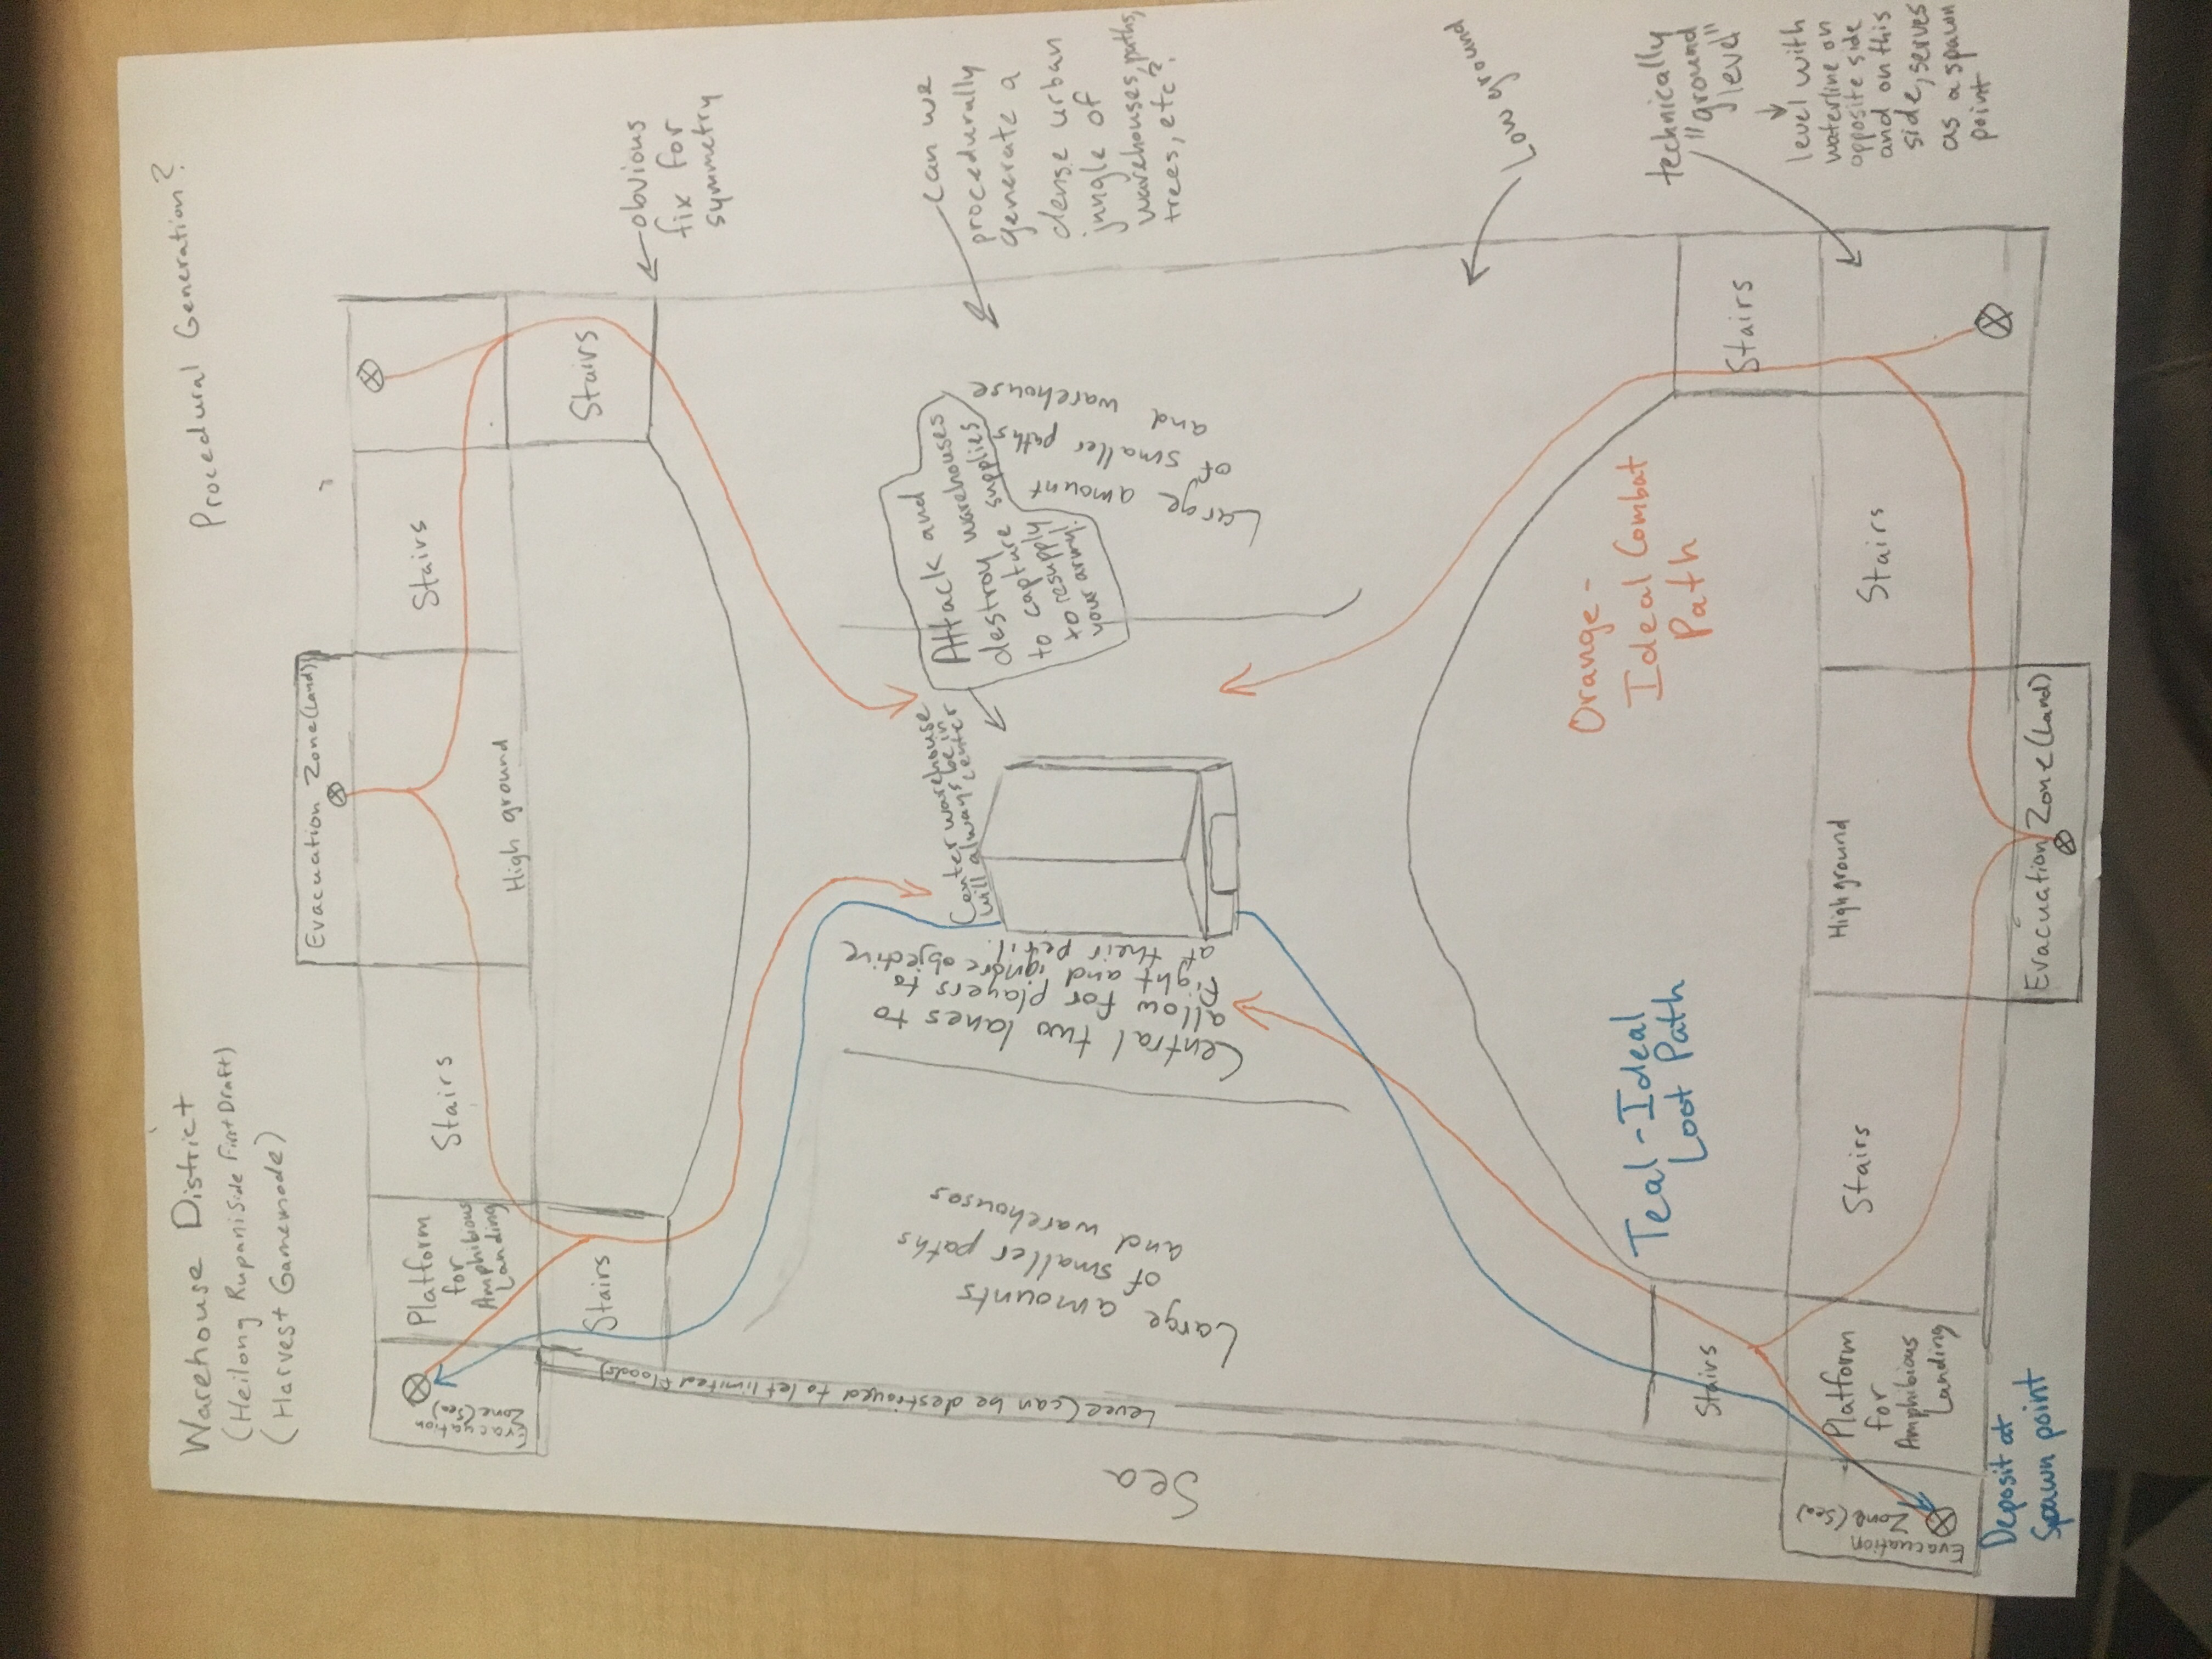 Warehouse District
(Heilong Rupani Side First Draft)
(Harvest Gamemode)
Procedural Generation?
Evacuation Zone (Land)
Evacuation
Zone (Sea)
Platform
for
Amphibious
Landing
Stairs
High ground
Stairs
Stairs
Stairs
obvious
fix for
symmetry
Sea
Levee (can be destroyed to let limited floods)
Large amounts
of smaller paths
and warehouses
Central two lanes to
allow for players to
fight and ignore objective
at their peril.
Center warehouse
will always be in
center
Attack and
destroy warehouses
to capture supplies
to resupply
your army!
Large amount
of smaller paths
and warehouse
can we
procedurally
generate a
dense urban
jungle of
warehouses, paths,
trees, etc?
Low ground
Teal - Ideal
Loot Path
Orange -
Ideal Combat
Path
technically
"ground
level"
level with
waterline on
opposite side
and on this
side, serves
as a spawn
point
Stairs
Stairs
Evacuation
Zone (Sea)
Platform
for
Amphibious
Landing
Stairs
High ground
Stairs
Deposit at
Spawn point
Evacuation Zone (Land)